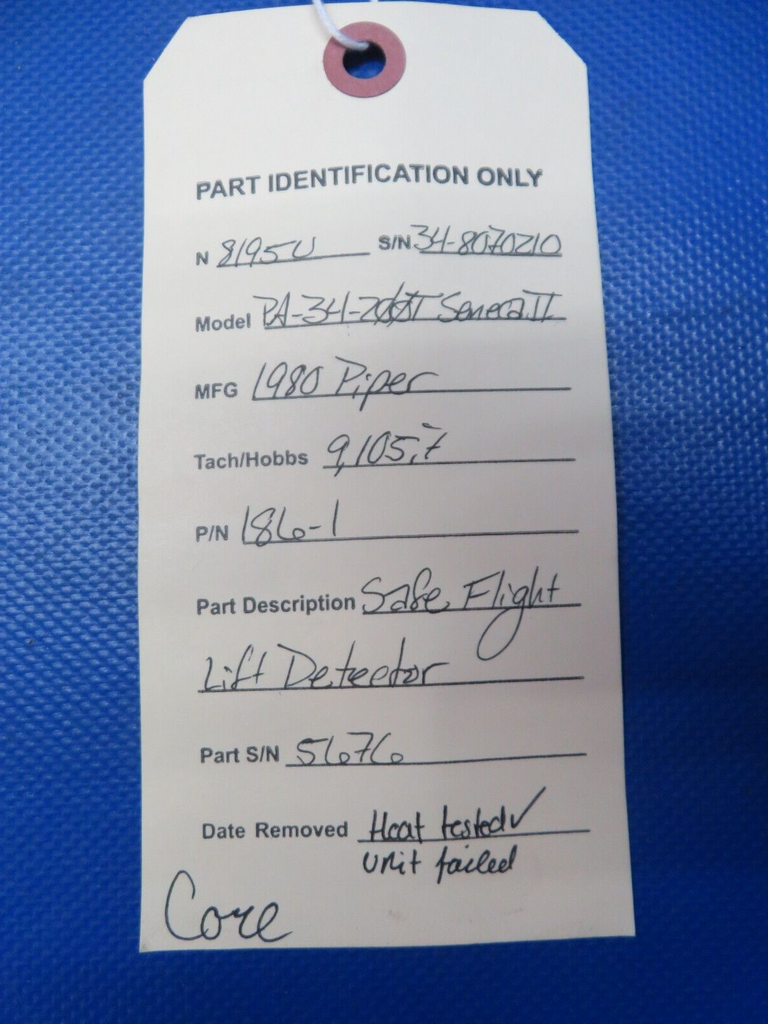 PART IDENTIFICATION ONLY
N 8195U S/N 34-8070210
Model PA-34-200T Seneca II
MFG 1980 Piper
Tach/Hobbs 9,105.7
P/N 186-1
Part Description Safe Flight
Lift Detector
Part S/N 5676
Date Removed Heat tested✓
Unit failed
Core